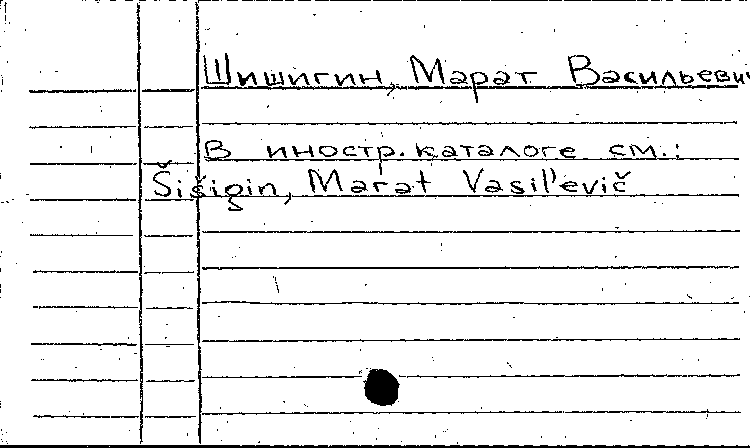 Шишигин, Марат Васильевич
В иностр. каталоге см.:
Šišigin, Marat Vasil'evič